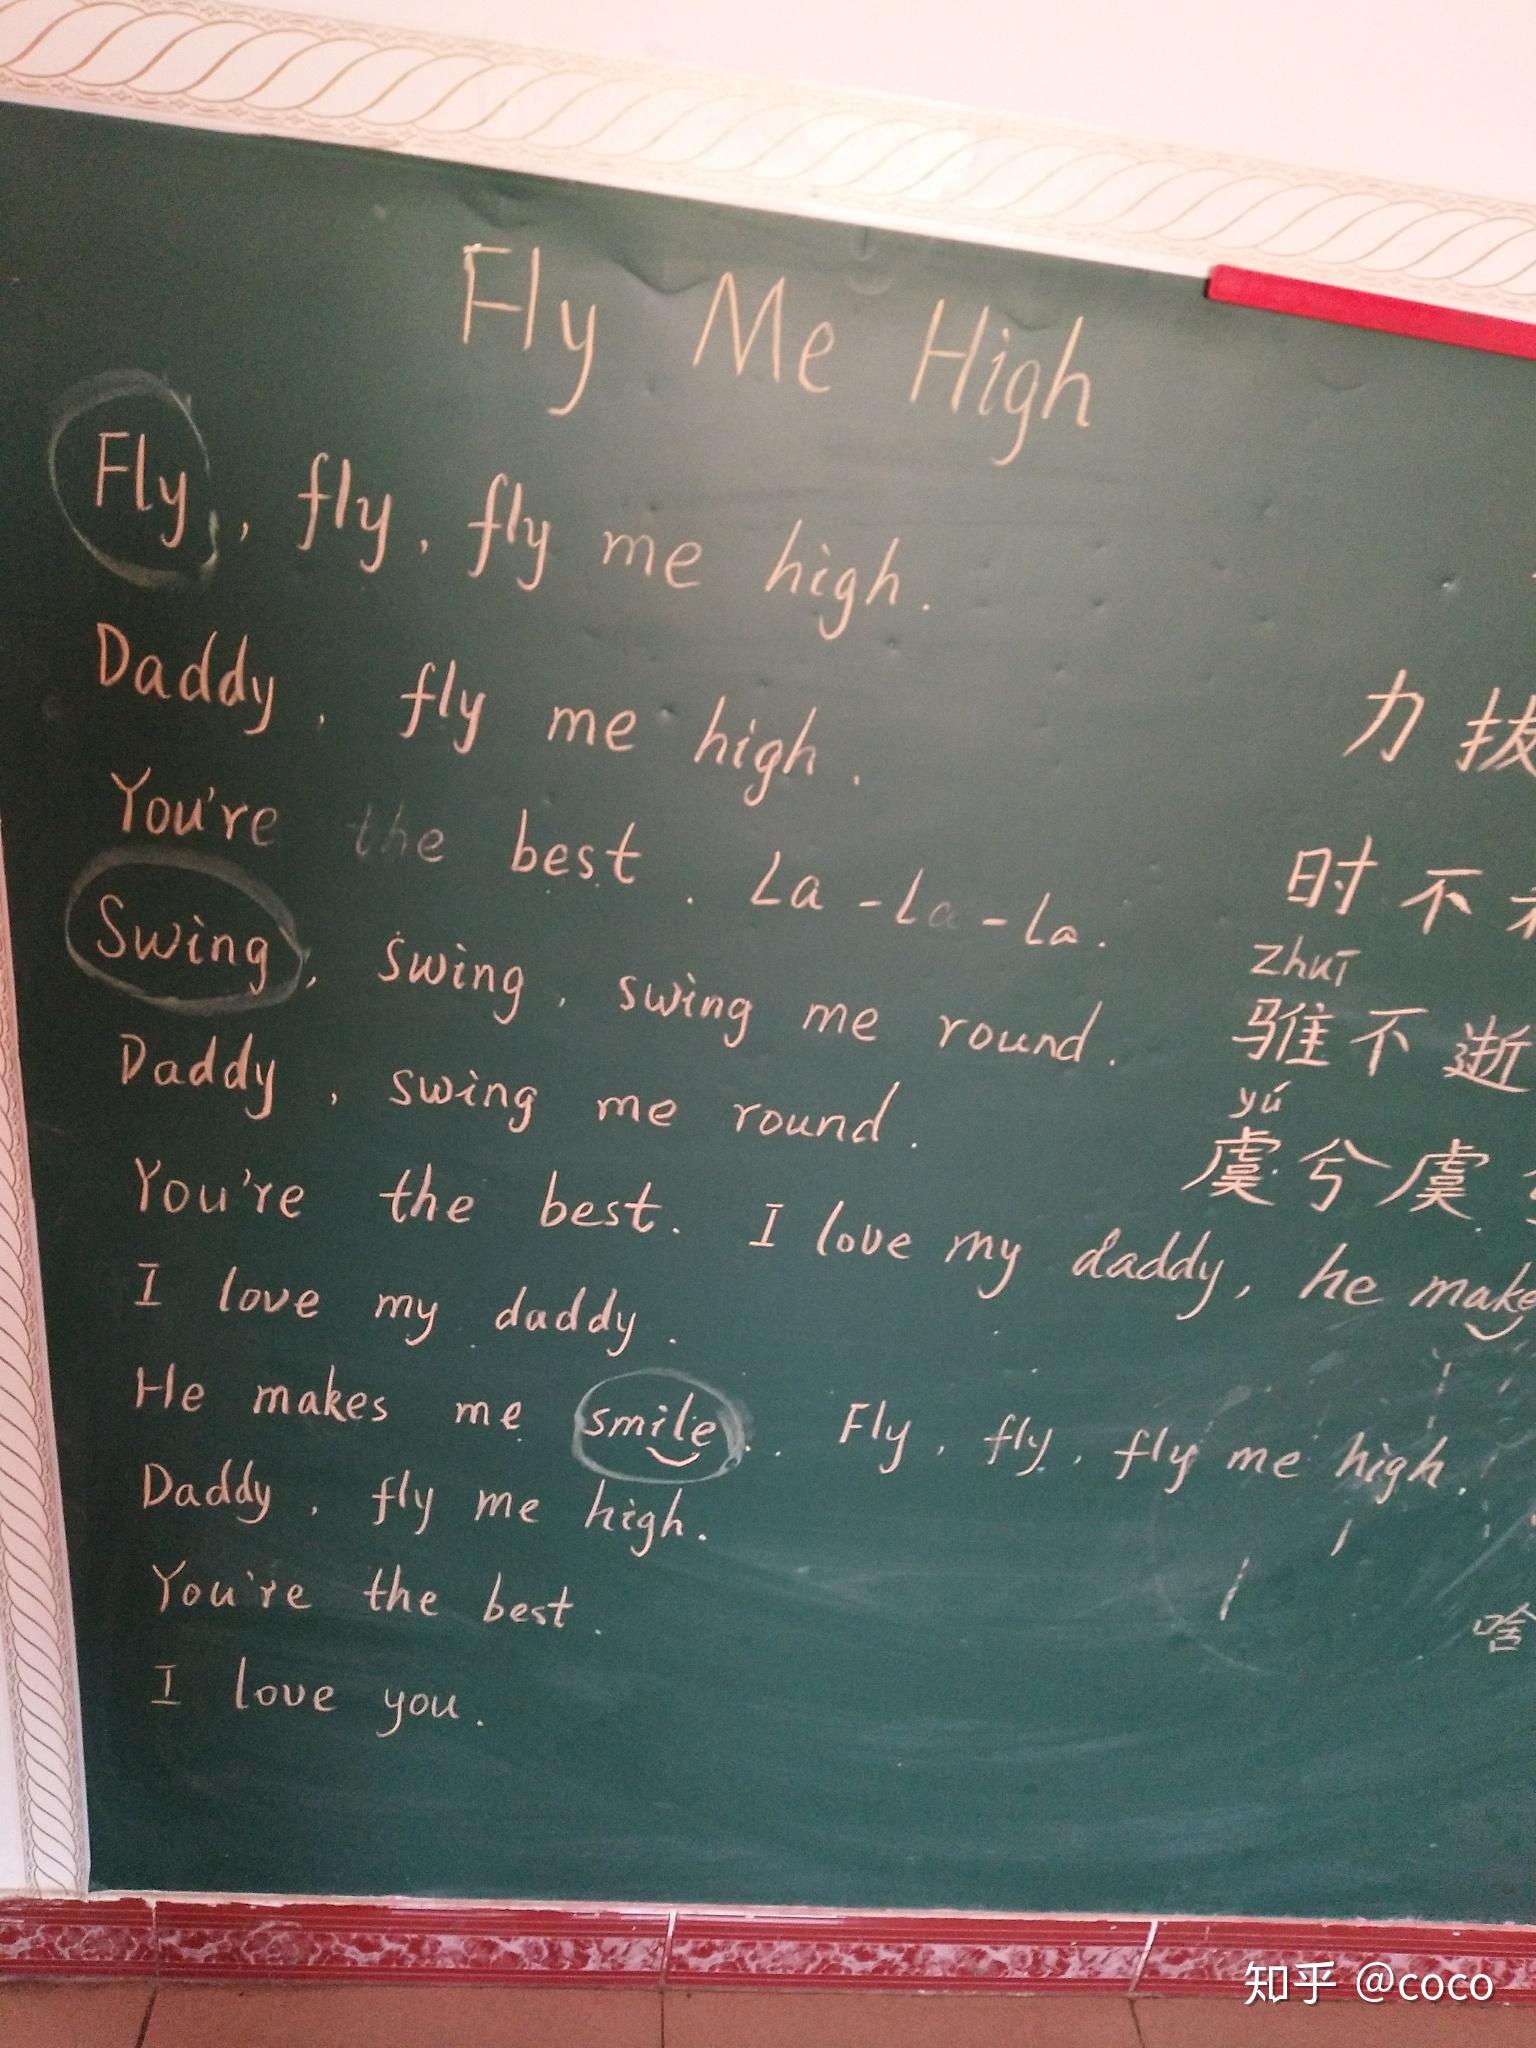 Fly Me High
Fly, fly, fly me high.
Daddy, fly me high.
You're the best. La-La-La.
Swing, swing, swing me round.
Daddy, swing me round.
You're the best. I love my daddy, he make
I love my daddy.
He makes me smile. Fly, fly, fly me high.
Daddy, fly me high.
You're the best.
I love you.
力拔
时不
zhuī
骓不逝
yú
虞兮虞
啥
知乎 @coco